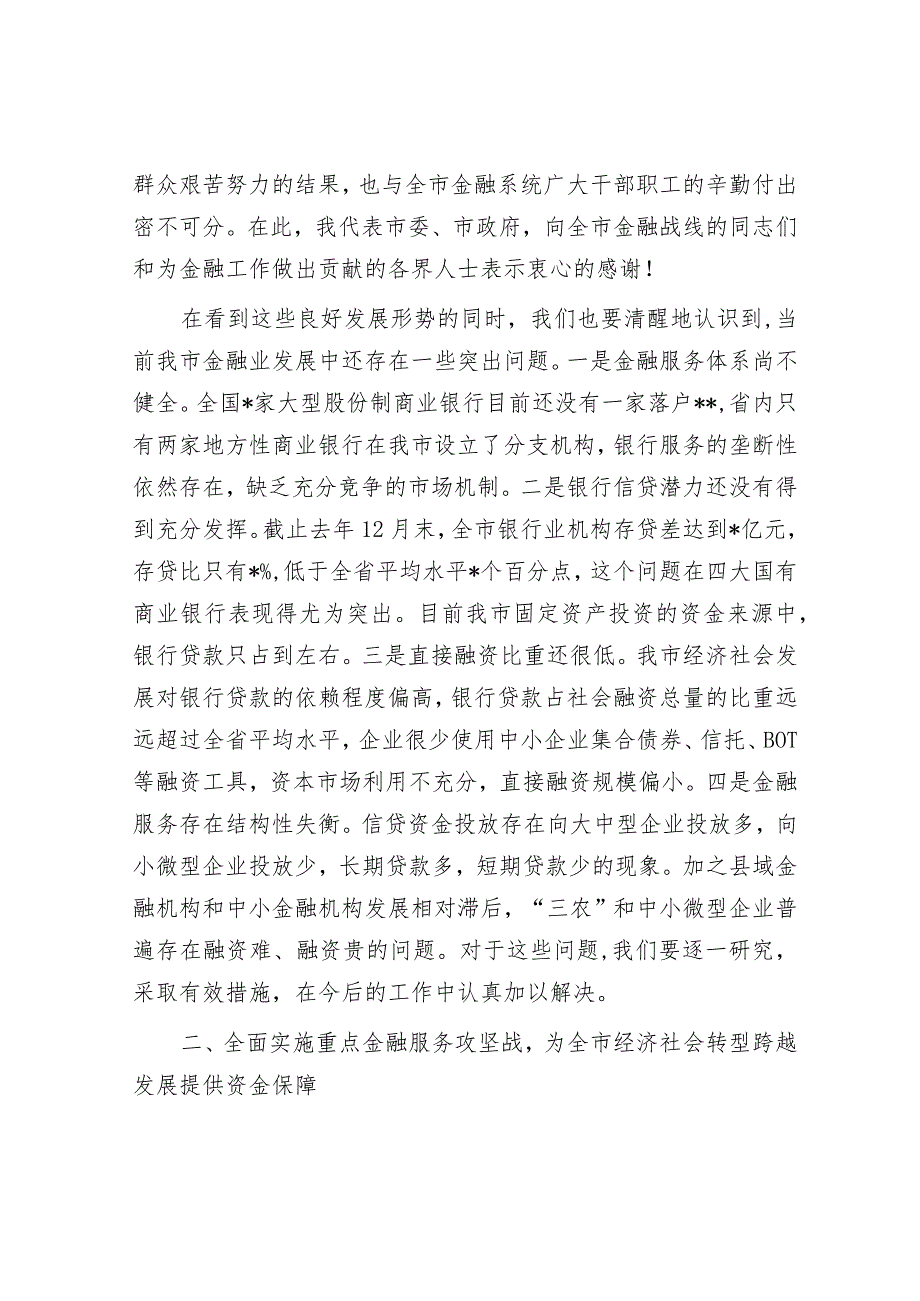 群众艰苦努力的结果，也与全市金融系统广大干部职工的辛勤付出
密不可分。在此，我代表市委、市政府，向全市金融战线的同志们
和为金融工作做出贡献的各界人士表示衷心的感谢！
在看到这些良好发展形势的同时，我们也要清醒地认识到,当
前我市金融业发展中还存在一些突出问题。一是金融服务体系尚不
健全。全国*家大型股份制商业银行目前还没有一家落户**,省内只
有两家地方性商业银行在我市设立了分支机构，银行服务的垄断性
依然存在，缺乏充分竞争的市场机制。二是银行信贷潜力还没有得
到充分发挥。截止去年12月末，全市银行业机构存贷差达到*亿元，
存贷比只有*%,低于全省平均水平*个百分点，这个问题在四大国有
商业银行表现得尤为突出。目前我市固定资产投资的资金来源中，
银行贷款只占到左右。三是直接融资比重还很低。我市经济社会发
展对银行贷款的依赖程度偏高，银行贷款占社会融资总量的比重远
远超过全省平均水平，企业很少使用中小企业集合债券、信托、BOT
等融资工具，资本市场利用不充分，直接融资规模偏小。四是金融
服务存在结构性失衡。信贷资金投放存在向大中型企业投放多，向
小微型企业投放少，长期贷款多，短期贷款少的现象。加之县域金
融机构和中小金融机构发展相对滞后，“三农”和中小微型企业普
遍存在融资难、融资贵的问题。对于这些问题,我们要逐一研究，
采取有效措施，在今后的工作中认真加以解决。
二、全面实施重点金融服务攻坚战，为全市经济社会转型跨越
发展提供资金保障